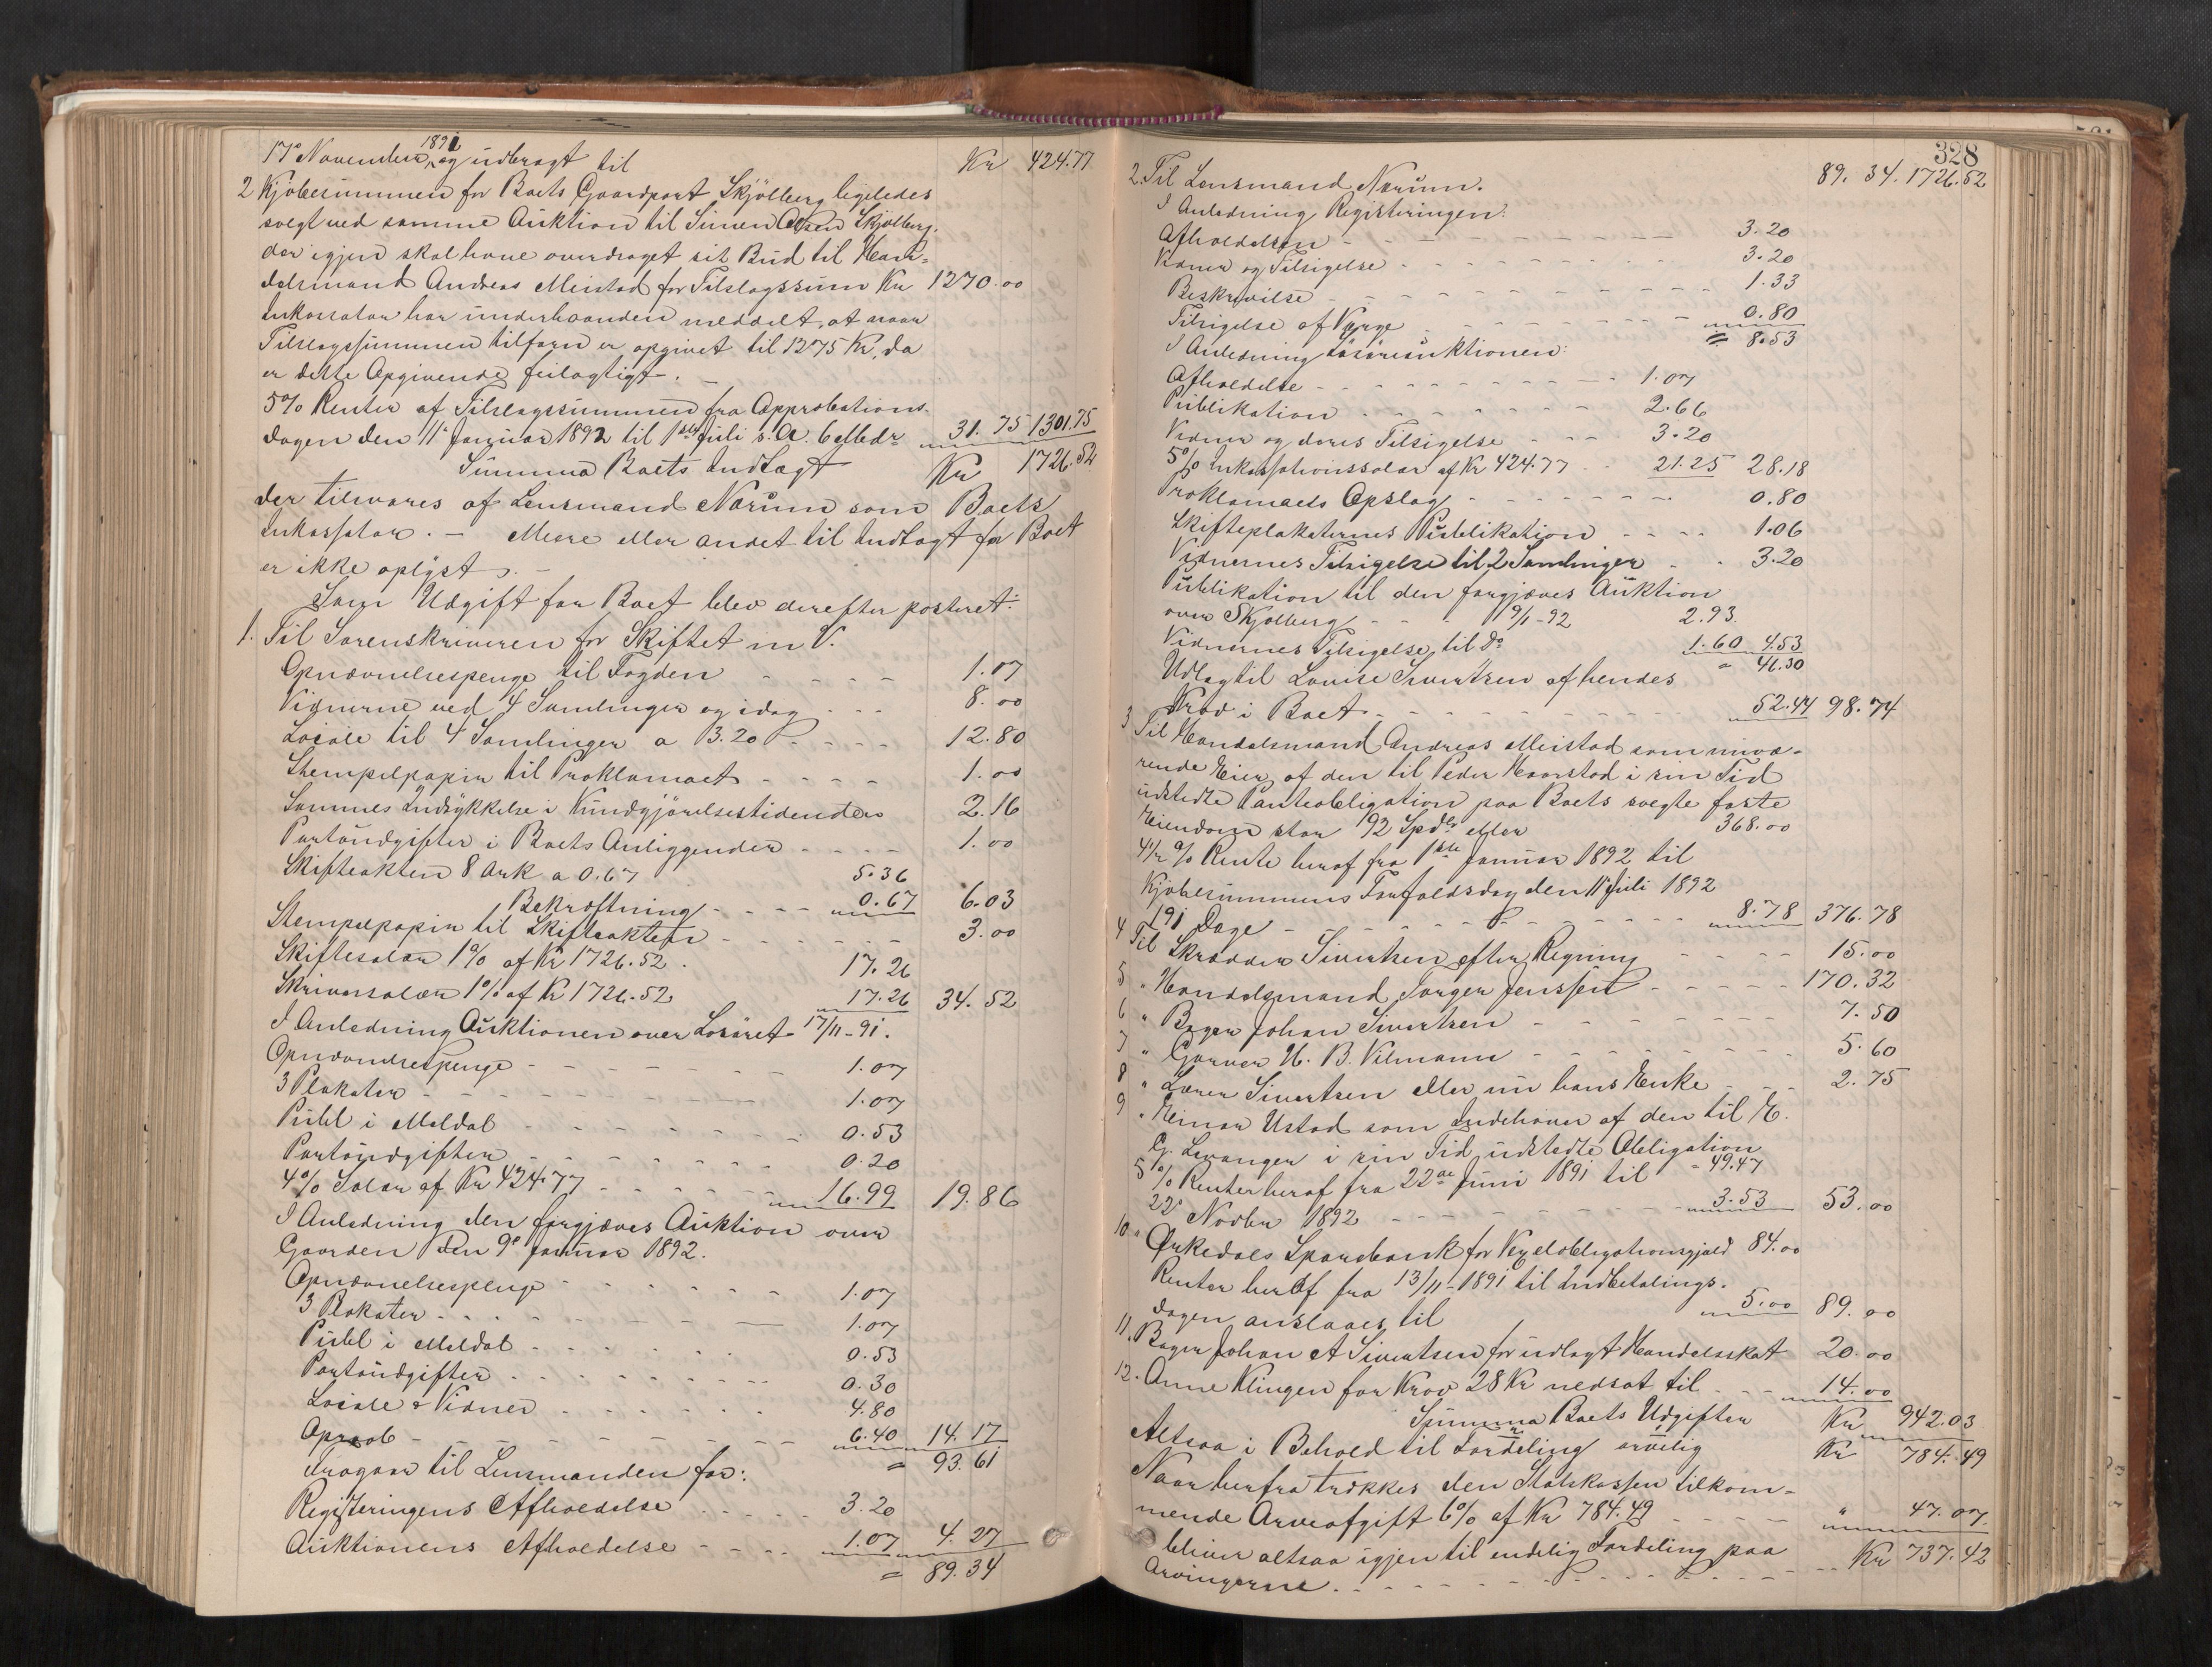 17de November 1891, og udbragt til Kr 424.77
2 Kjøbesummen for Boets Gaardpart Skjølberg ligeledes
solgt ved samme Auktion til Simen Olsen Skjølberg.
der igjen skal have overdraget sit Bud til Han-
delsmand Andreas Meistad for Tilslagssum Kr 1270.00
Inkassator har underhaanden meddelt, at naar
Tilslagssummen tilforn er opgivet til 1275 Kr, da
er dette Opgivende feilagtigt. –
5% Renter af Tilslagssummen fra Approbations-
dagen den 11te Januar 1892 til 1ste Juli s. A. 6 Mdr 31.75 1301.75
Summa Boets Indtægt Kr 1726.52
der tilsvares af Lensmand Narum som Boets
Inkassator. – Mere eller andet til Indtægt for Boet
er ikke oplyst. –
Som Udgift for Boet blev derefter posteret:
1. Til Sorenskriveren for Skiftet m V.
Opnævnelsespenge til Fogden 1.07
Vidnerne ved 4 Samlinger og idag 8.00
Locale til 4 Samlinger a 3.20 12.80
Stempelpapir til Proklamaet 1.00
Sammes Indrykkelse i Kundgjørelsestidenden 2.16
Portoudgifter i Boets Anliggender 1.00
Skifteakten 8 Ark a 0.67 5.36
Bekræftning 0.67 6.03
Stempelpapir til Skifteakten 3.00
Skiftesalær 1% af Kr 1726.52. 17.26
Skriversalær 1% af Kr 1726.52 17.26 34.52
I Anledning Auktionen over Løsøret 17/11-91.
Opnævnelsespenge 1.07
3 Plakater 1.07
Publ i Meldal 0.53
Portoudgifter 0.20
4% Salær af Kr 424.77 16.99 19.86
I Anledning den forgjæves Auktion over
Gaarden den 9de Januar 1892.
Opnævnelsespenge 1.07
3 Plakater 1.07
Publ i Meldal 0.53
Portoudgifter 0.30
Locale & Vidner 4.80
Opraab 6.40 14.17
= 93.61
Fragaar til Lensmanden for:
Registeringens Afholdelse 3.20
Auktionens Afholdelse 1.07 4.27
= 89.34
328
89.34. 1726.52
2. Til Lensmand Narum.
I Anledning Registeringen:
Afholdelsen 3.20
Vidner og Tilsigelse 3.20
Beskrivelse 1.33
Tilsigelse af Værge 0.80
= 8.53
I Anledning Løsøreauktionen:
Afholdelse 1.07
Publikation 2.66
Vidner og deres Tilsigelse 3.20
5% Inkassationssalær af Kr 424.77 21.25 28.18
Proklamaets Opslag 0.80
Skifteplakaternes Publikation 1.06
Vidnernes Tilsigelse til 2 Samlinger 3.20
Publikation til den forgjæves Auktion
over Skjølberg 9/1-92 2.93.
Vidnernes Tilsigelse til do 1.60 4.53
= 46.30
Udlæg til Lovise Sivertsen af hendes
Krav i Boet 52.44 98.74
3 Til Handelsmand Andreas Meistad som nuvæ-
rende Eier af den til Peder Haarstad i sin Tid
udstedte Panteobligation paa Boets solgte faste
Eiendom stor 92 Spdlr eller 368.00
4½% Rente heraf fra 1ste Januar 1892 til
Kjøbesummens Forfaldsdag den 11te Juli 1892
191 Dage 8.78 376.78
4 Til Skrædder Sivertsen efter Regning 15.00
5 " Handelsmand Jørgen Jenssen 170.32
6 " Bager Johan Sivertsen 7.50
7 " Garver H. B. Vilmann 5.60
8 " Lærer Sivertsen eller nu hans Enke 2.75
9 " Heimar Ustad som Indehaver af den til E.
Lj. Levanger i sin Tid udstedte Obligation = 49.47
5% Renter heraf fra 22de Juni 1891 til
22de Novbr 1892 3.53 53.00
10 " Ørkedals Sparebank for Vexelobligationsgjæld 84.00
Renter heraf fra 13/11-1891 til Indbetalings-
dagen anslaaes til 5.00 89.00
11. Bager Johan A Sivertsen for udlagt Handelsskat 20.00
12. Anne Klingen for Krav 28 Kr nedsat til 14.00
Summa Boets Udgifter Kr 942.03
Altsaa i Behold til Fordeling arvelig Kr 784.49
Naar herfra trækkes den Statskassen tilkom-
mende Arveafgift 6% af Kr 784.49 " 47.07.
bliver altsaa igjen til endelig Fordeling paa
Arvingerne Kr 737.42